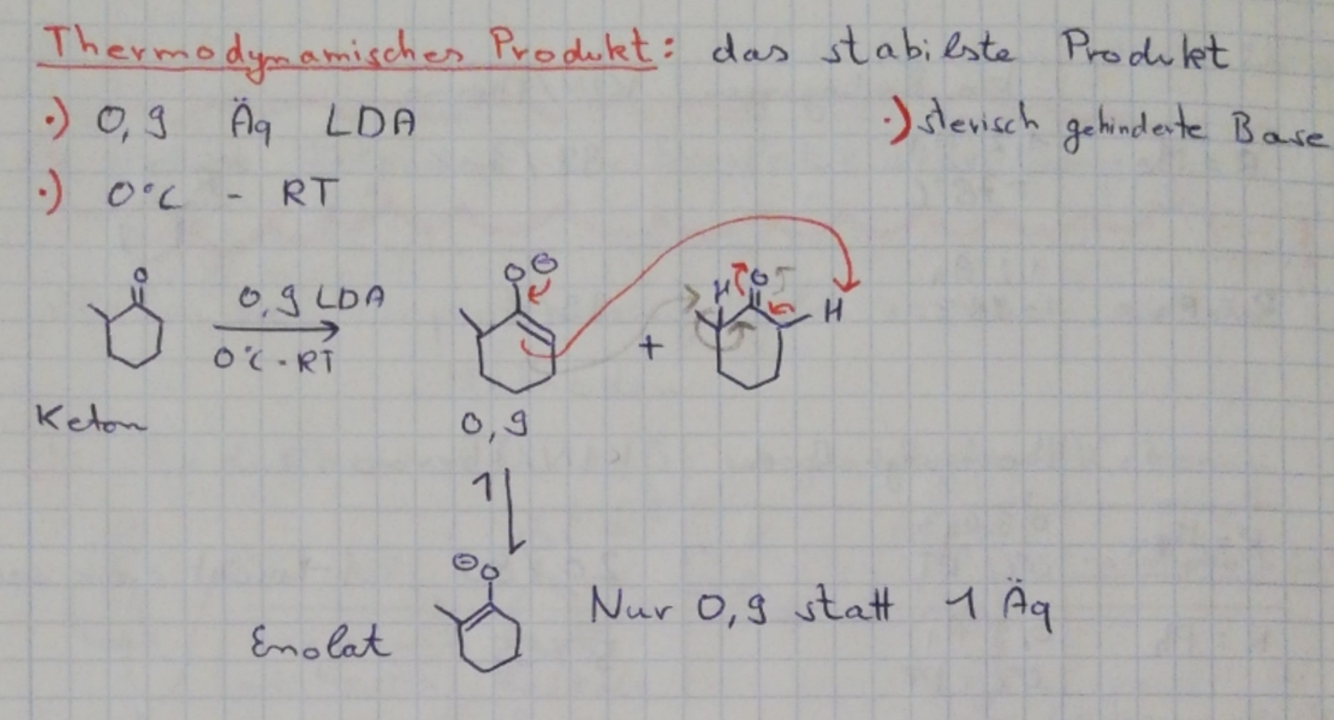 Thermodynamisches Produkt: das stabilste Produkt
·) 0,9 Äq LDA
·) sterisch gehinderte Base
·) 0°C - RT
O
0,9 LDA
0°C - RT
O ⊖
+
H O H
Keton
0,9
1
⊖ O
Enolat
Nur 0,9 statt 1 Äq